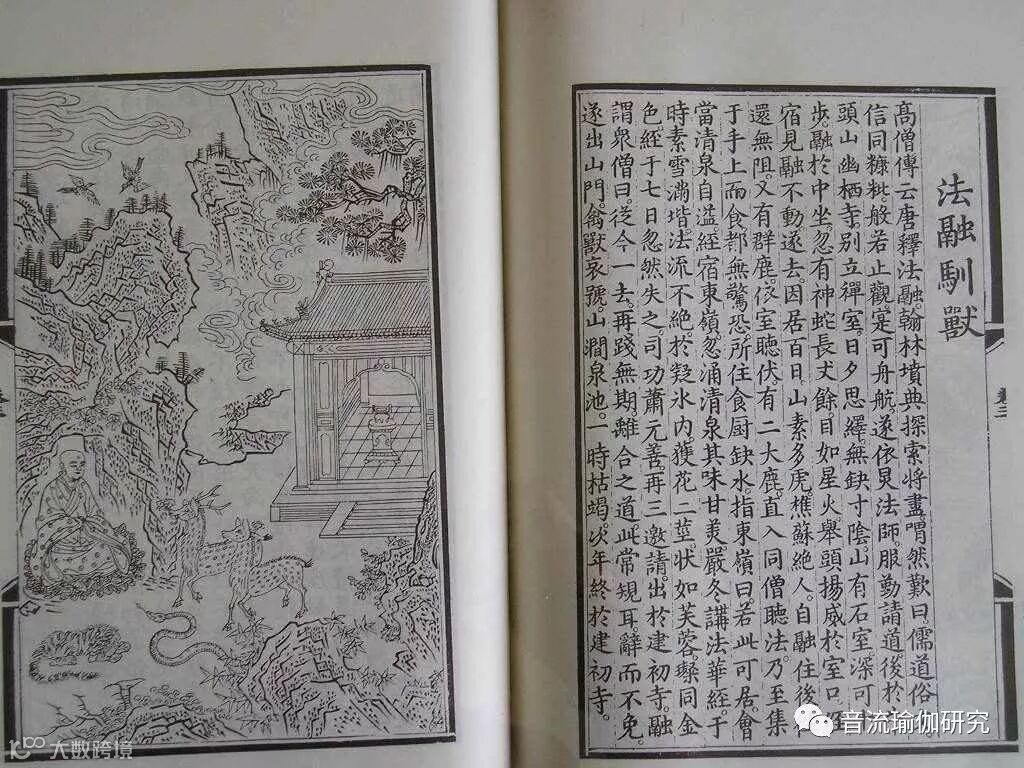 法融馴獸
高僧傳云唐釋法融。翰林墳典探索將盡喟然歎曰。儒道俗
信同糠粃。般若止觀。寔可舟航。遂依炅法師服勤請道後於
頭山幽栖寺。別立禪室。日夕思繹。無缺寸陰山有石室深可
步。融於中坐。忽有神蛇長丈餘目如星火舉頭揚威於室口
宿見融不動遂去。因居百日。山素多虎樵蘇絶人。自融住後
還無阻。又有群鹿。依室聽伏。有二大鹿。直入同僧聽法。乃至集
于手上而食都無驚恐。所住食厨缺水。指東嶺曰若此可居會
當清泉自溢。經宿東嶺忽涌清泉。其味甘美。嚴冬講法華經于
時素雪滿堦法流不絶於凝氷内。獲花二莖狀如芙蓉璨同金
色。經于七日忽然失之司功蕭元善再三邀請。出於建初寺。融
謂衆僧曰。從今一去再踐無期。離合之道此常規耳。辭而不免。
遂出山門。禽獸哀號。山澗泉池。一時枯竭。次年終於建初寺。
音流瑜伽研究
大数跨境